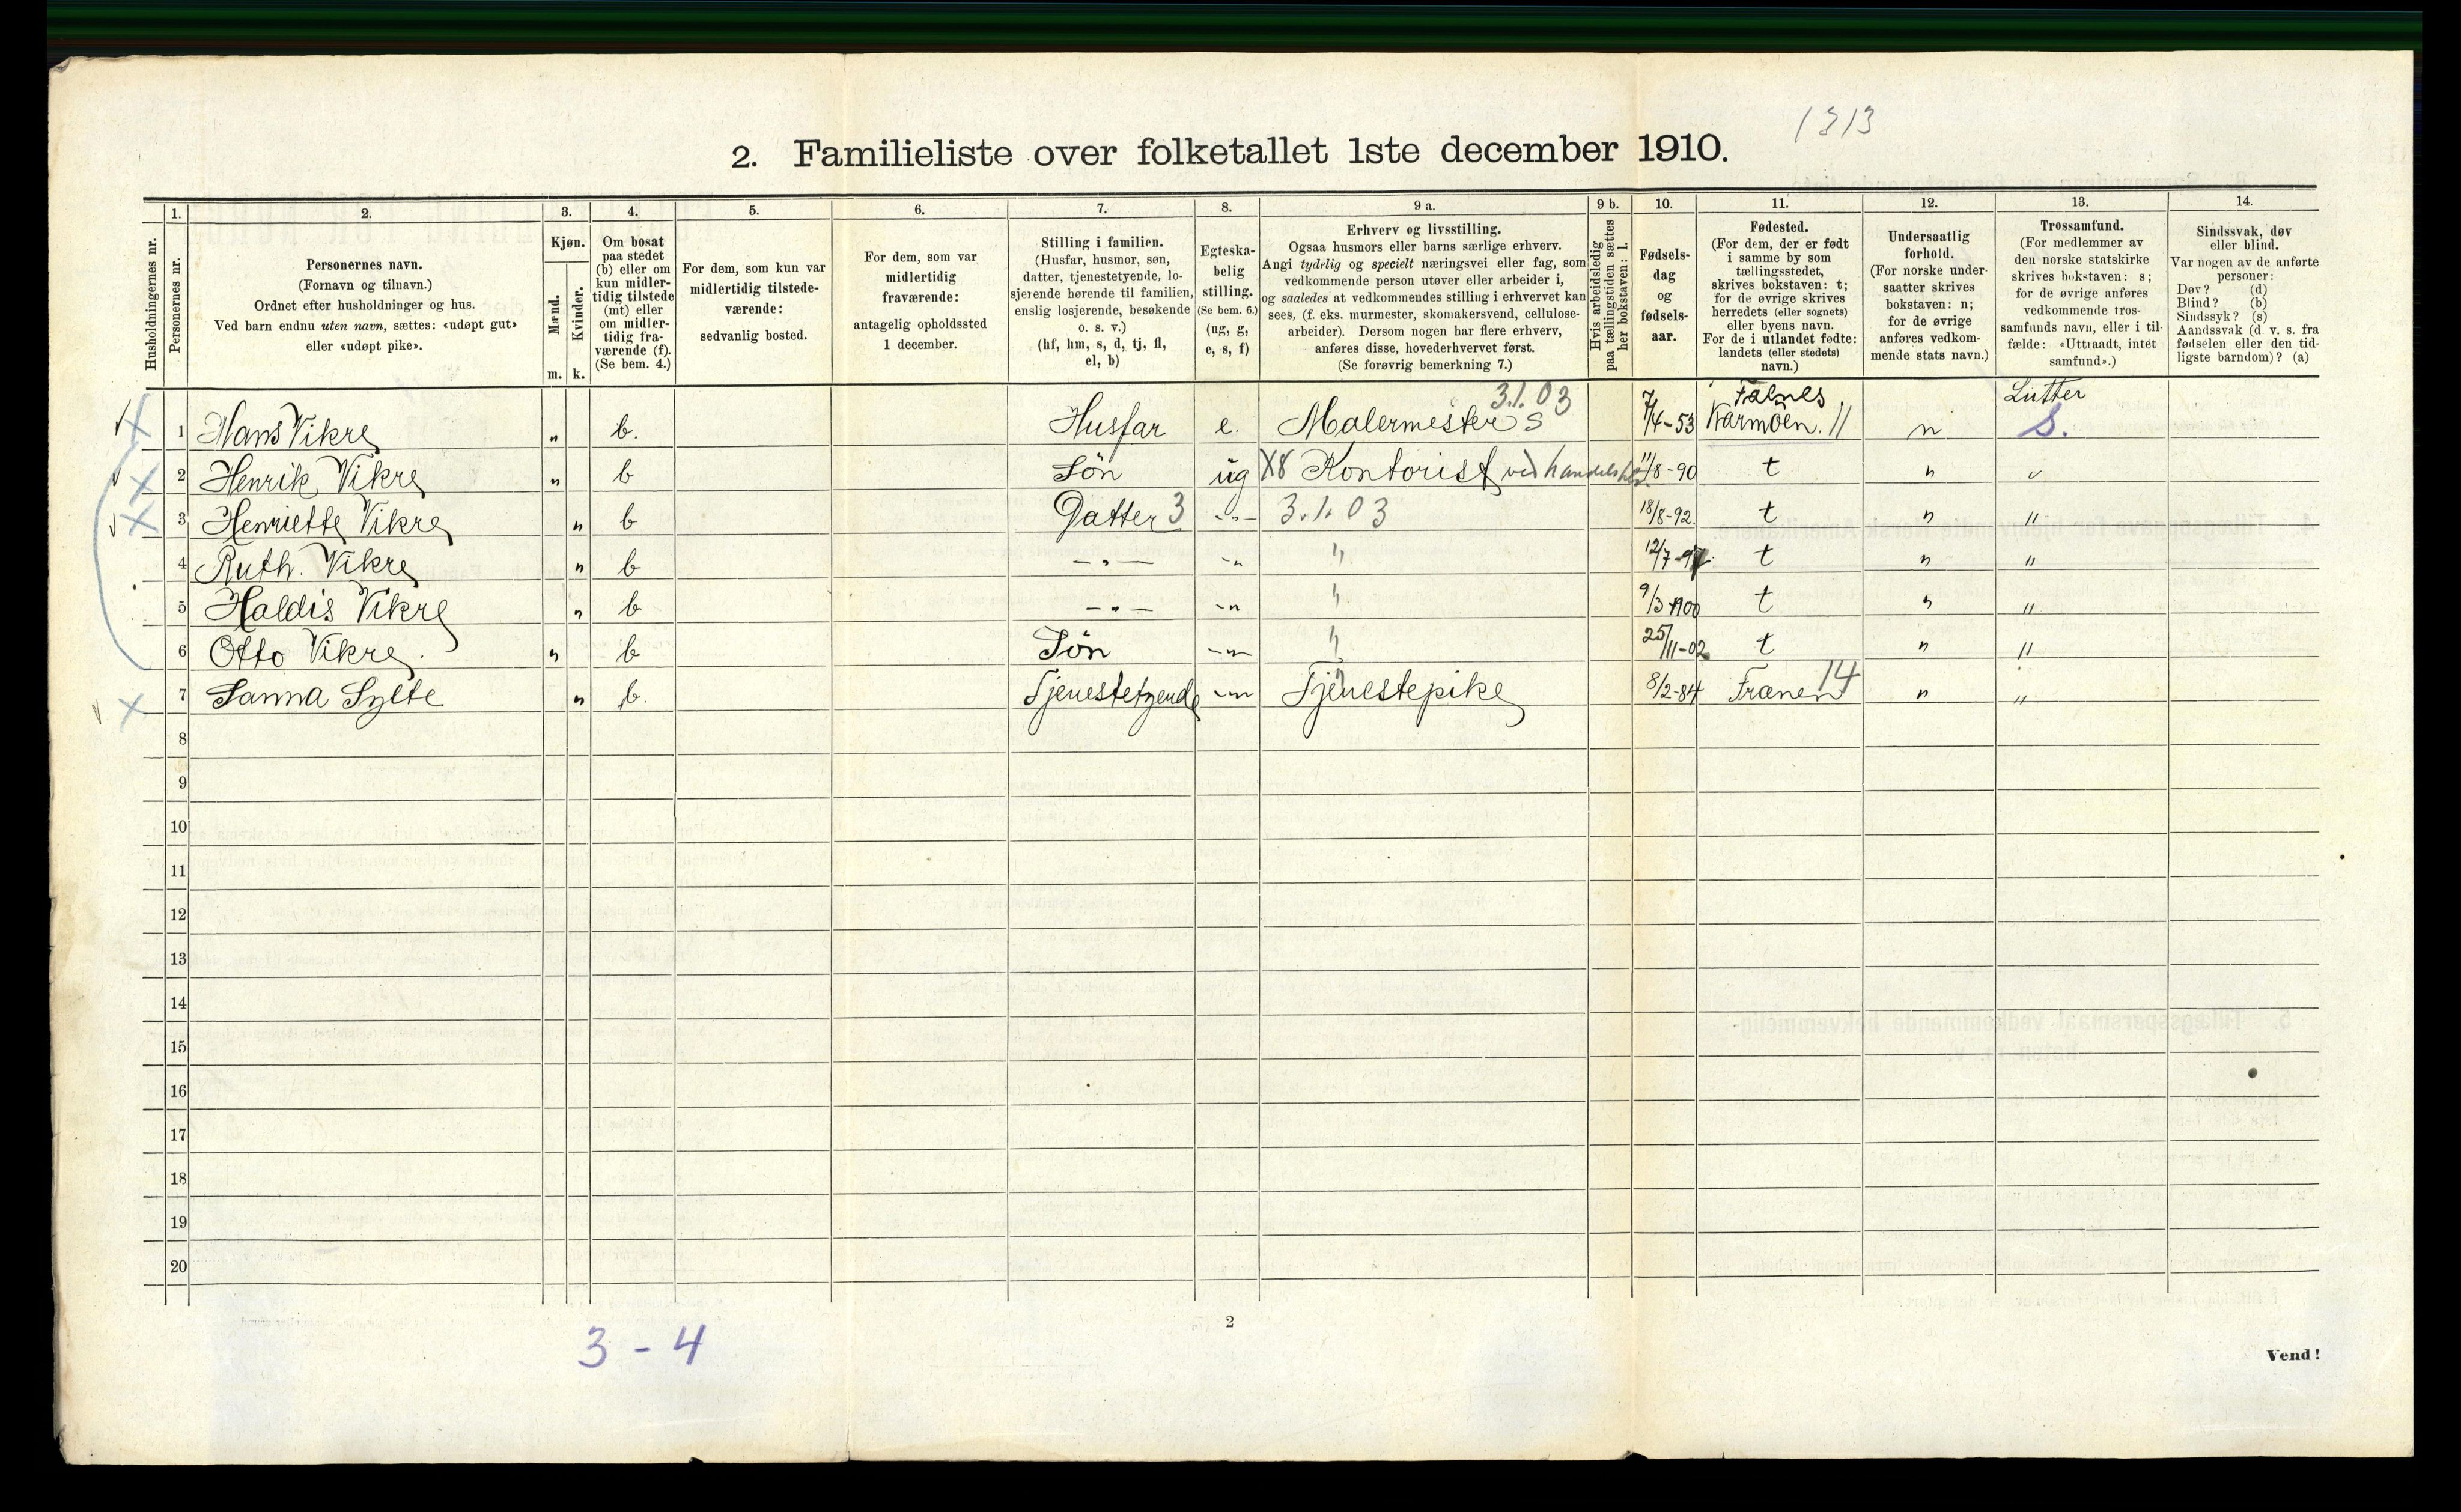 1313
2. Familieliste over folketallet 1ste december 1910.
1. 2. 3. 4. 5. 6. 7. 8. 9 a. 9 b. 10. 11. 12. 13. 14.
Husholdningernes nr.
Personernes nr.
Personernes navn.
(Fornavn og tilnavn.)
Ordnet efter husholdninger og hus.
Ved barn endnu uten navn, sættes: «udøpt gut»
eller «udøpt pike».
Kjøn.
Mænd.
Kvinder.
m. k.
Om bosat
paa stedet
(b) eller om
kun midler-
tidig tilstede
(mt) eller
om midler-
tidig fra-
værende (f).
(Se bem. 4.)
For dem, som kun var
midlertidig tilstede-
værende:
sedvanlig bosted.
For dem, som var
midlertidig
fraværende:
antagelig opholdssted
1 december.
Stilling i familien.
(Husfar, husmor, søn,
datter, tjenestetyende, lo-
sjerende hørende til familien,
enslig losjerende, besøkende
o. s. v.)
(hf, hm, s, d, tj, fl,
el, b)
Egteska-
belig
stilling.
(Se bem. 6.)
(ug, g,
e, s, f)
Erhverv og livsstilling.
Ogsaa husmors eller barns særlige erhverv.
Angi tydelig og specielt næringsvei eller fag, som
vedkommende person utøver eller arbeider i,
og saaledes at vedkommendes stilling i erhvervet kan
sees, (f. eks. murmester, skomakersvend, cellulose-
arbeider). Dersom nogen har flere erhverv,
anføres disse, hovederhvervet først.
(Se forøvrig bemerkning 7.)
Hvis arbeidsledig
paa tællingstiden sættes
her bokstaven: l.
Fødsels-
dag
og
fødsels-
aar.
Fødested.
(For dem, der er født
i samme by som
tællingsstedet,
skrives bokstaven: t;
for de øvrige skrives
herredets (eller sognets)
eller byens navn.
For de i utlandet fødte:
landets (eller stedets)
navn.)
Undersaatlig
forhold.
(For norske under-
saatter skrives
bokstaven: n;
for de øvrige
anføres vedkom-
mende stats navn.)
Trossamfund.
(For medlemmer av
den norske statskirke
skrives bokstaven: s;
for de øvrige anføres
vedkommende tros-
samfunds navn, eller i til-
fælde: «Uttraadt, intet
samfund».)
Sindssvak, døv
eller blind.
Var nogen av de anførte
personer:
Døv? (d)
Blind? (b)
Sindssyk? (s)
Aandssvak (d. v. s. fra
fødselen eller den tid-
ligste barndom)? (a)
3.1.03 Falnes Lutter
1 Hans Vikre " b. Husfar e. Malermester S 7/4-53 Karmöen. 11 n S.
2 Henrik Vikre " b Sön ug X8 Kontorist ved handels 11/8-90 t n "
3 Henriette Vikre " b Datter 3 -"- 3.1.03 18/8-92. t n "
4 Ruth. Vikre " b -"- -" " 12/7-97. t n "
5 Haldis Vikre " b -"- -" " 9/3-1900 t n "
6 Otto Vikre. " b Sön -"- " 25/11-02 t n "
7 Sanna Sylte " b. Tjenestetyende -"- Tjenestepike 8/2-84 Frænen 14 n "
8
9
10
11
12
13
14
15
16
17
18
19
20
3 - 4
2
Vend!